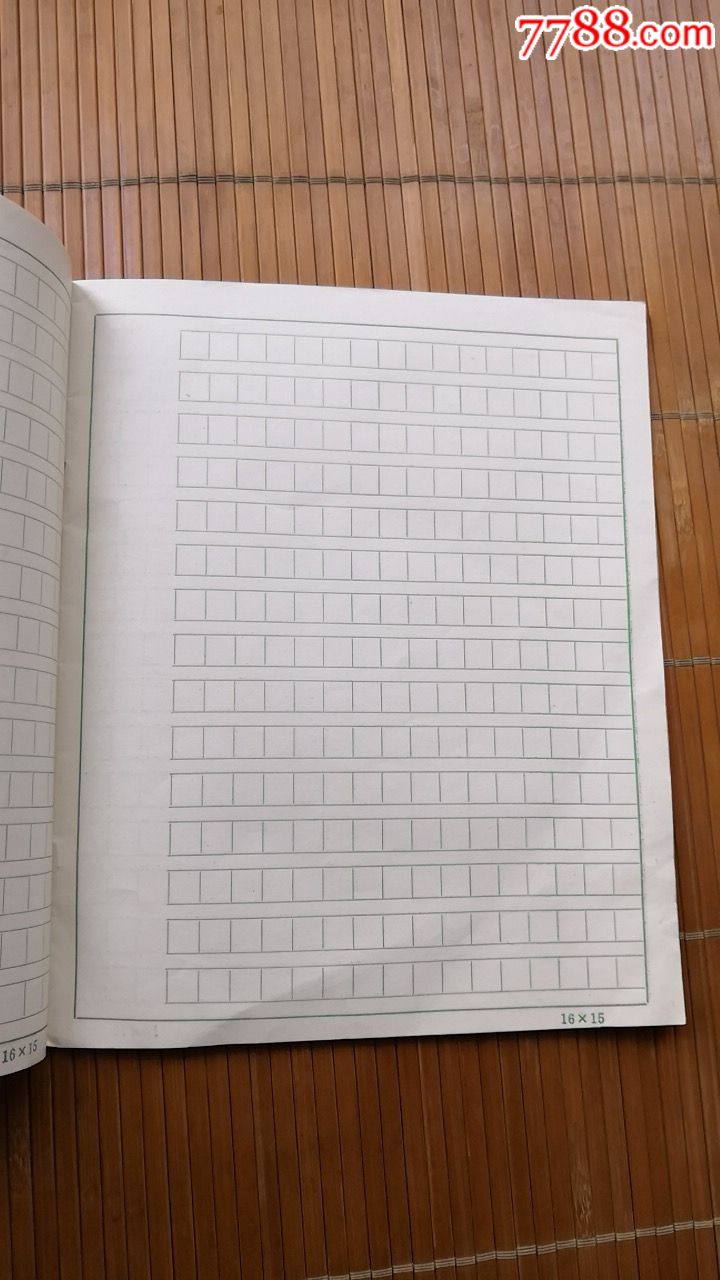 7788.com
16×15
16×15